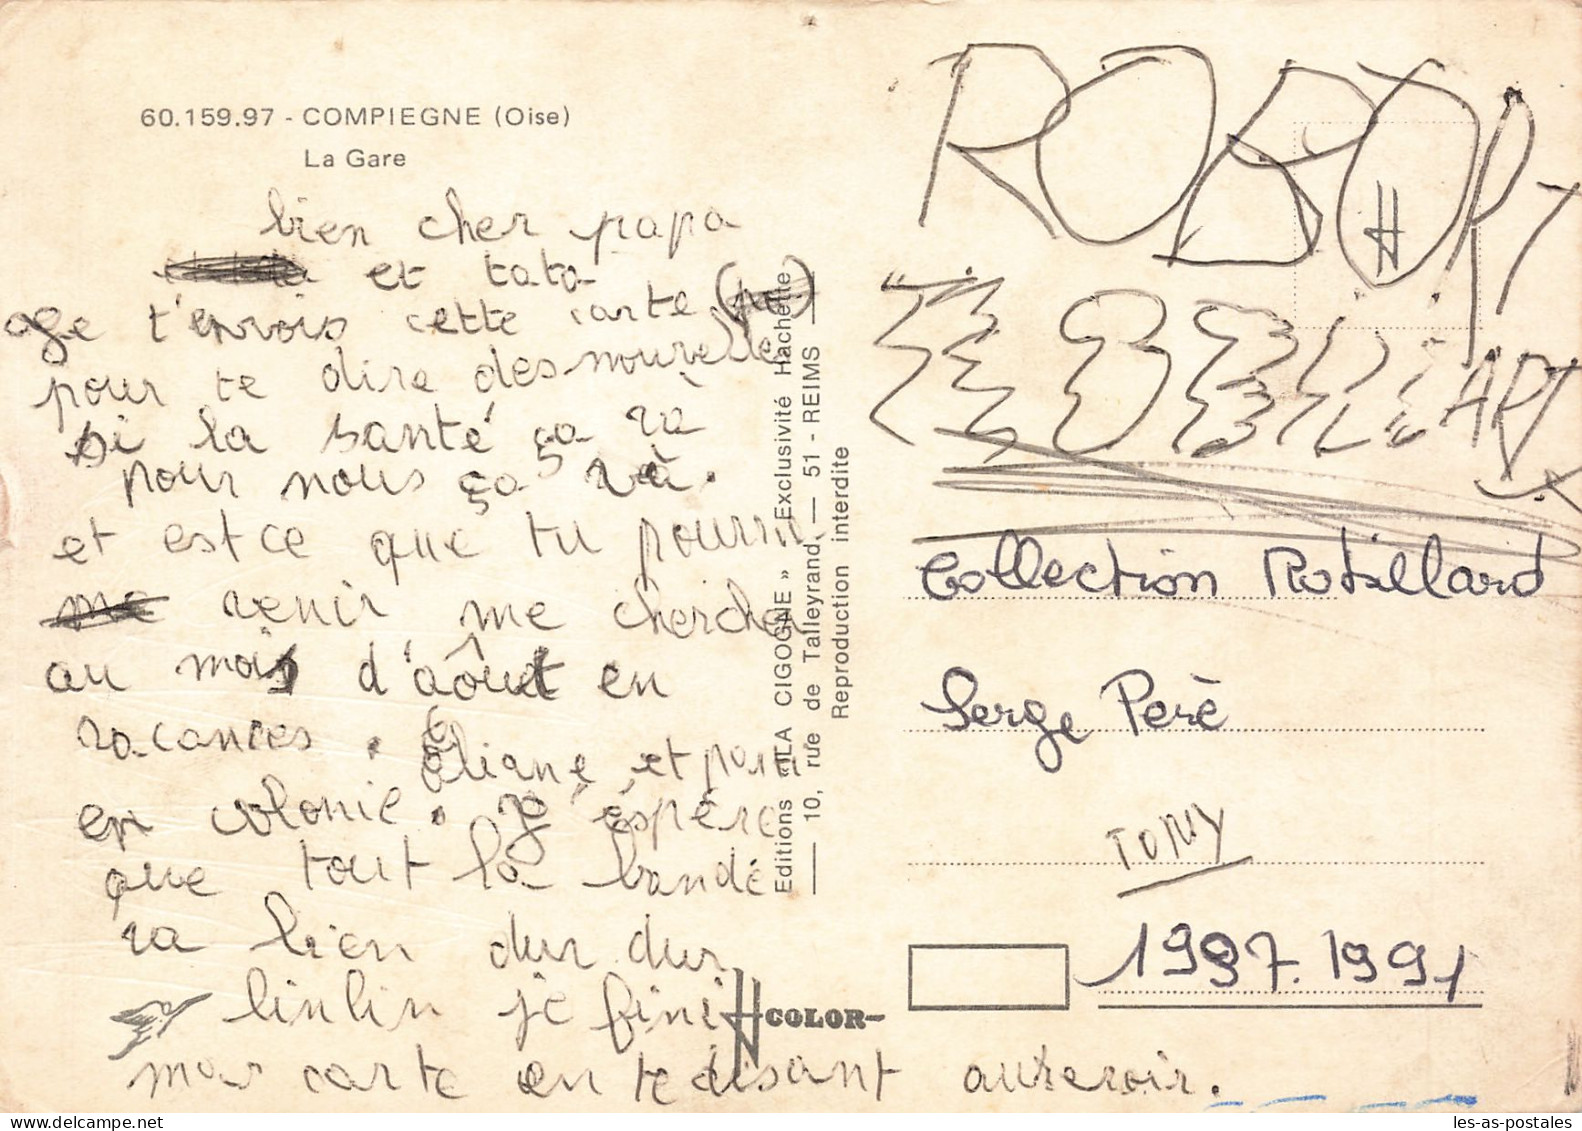 60.159.97 - COMPIEGNE (Oise)
La Gare
bien cher papa
et tata
ge t'envois cette carte
pour te dire des nouvelle
si la santé ça va
pour nous ça và.
et est ce que tu pourra
me venir me chercher
au mois d'aôut en
vacances. éliane et parti
en colonie. j'éspère
que tout la bandé
va bien dur dur
linlin je fini
mar carte en te disant aurevoir.
Editions «LA CIGOGNE» Exclusivité Hachette
10, rue de Talleyrand — 51 - REIMS
Reproduction interdite
H COLOR
ROBOR
H
ART
Collection Robillard
Serge Perè
TONY
1997.1991
les-as-postales